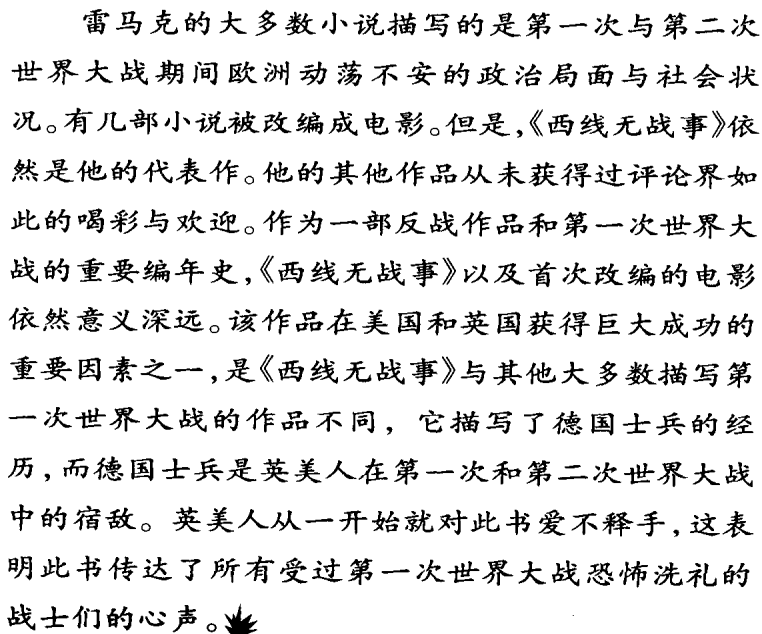 雷马克的大多数小说描写的是第一次与第二次
世界大战期间欧洲动荡不安的政治局面与社会状
况。有几部小说被改编成电影。但是,《西线无战事》依
然是他的代表作。他的其他作品从未获得过评论界如
此的喝彩与欢迎。作为一部反战作品和第一次世界大
战的重要编年史,《西线无战事》以及首次改编的电影
依然意义深远。该作品在美国和英国获得巨大成功的
重要因素之一,是《西线无战事》与其他大多数描写第
一次世界大战的作品不同，它描写了德国士兵的经
历,而德国士兵是英美人在第一次和第二次世界大战
中的宿敌。英美人从一开始就对此书爱不释手,这表
明此书传达了所有受过第一次世界大战恐怖洗礼的
战士们的心声。